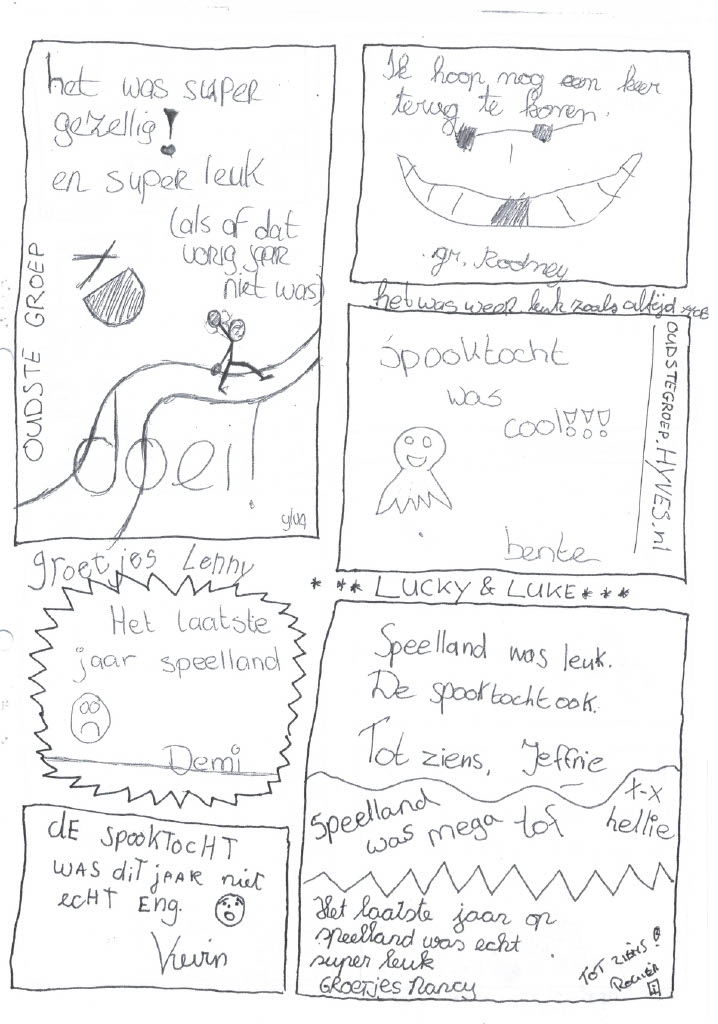 het was super
gezellig!
en super leuk
(als of dat
vorig jaar
niet was)
OUDSTE GROEP
doei!
groetjes Lenny
Het laatste
jaar speelland
Demi
dE SPOOKTOCHT
WAS dit jAAR niet
echt Eng.
Kevin
Ik hoop nog een keer
terug te komen.
gr. Rodney
het was weer leuk zoals altijd
spooktocht
was
cool!!!
bente
OUDSTEGROEP.HYVES.nl
* ** LUCKY & LUKE * * *
Speelland was leuk.
De spooktocht ook.
Tot ziens, Jeffrie
Speelland
was mega tof
x-x
hellie
Het laatste jaar op
speelland was echt
super leuk
Groetjes Nancy
TOT ZIENS!
ROGIER